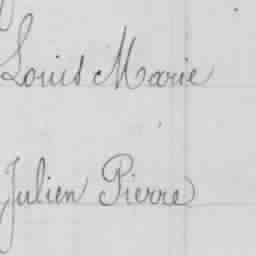 Louis Marie
Julien Pierre